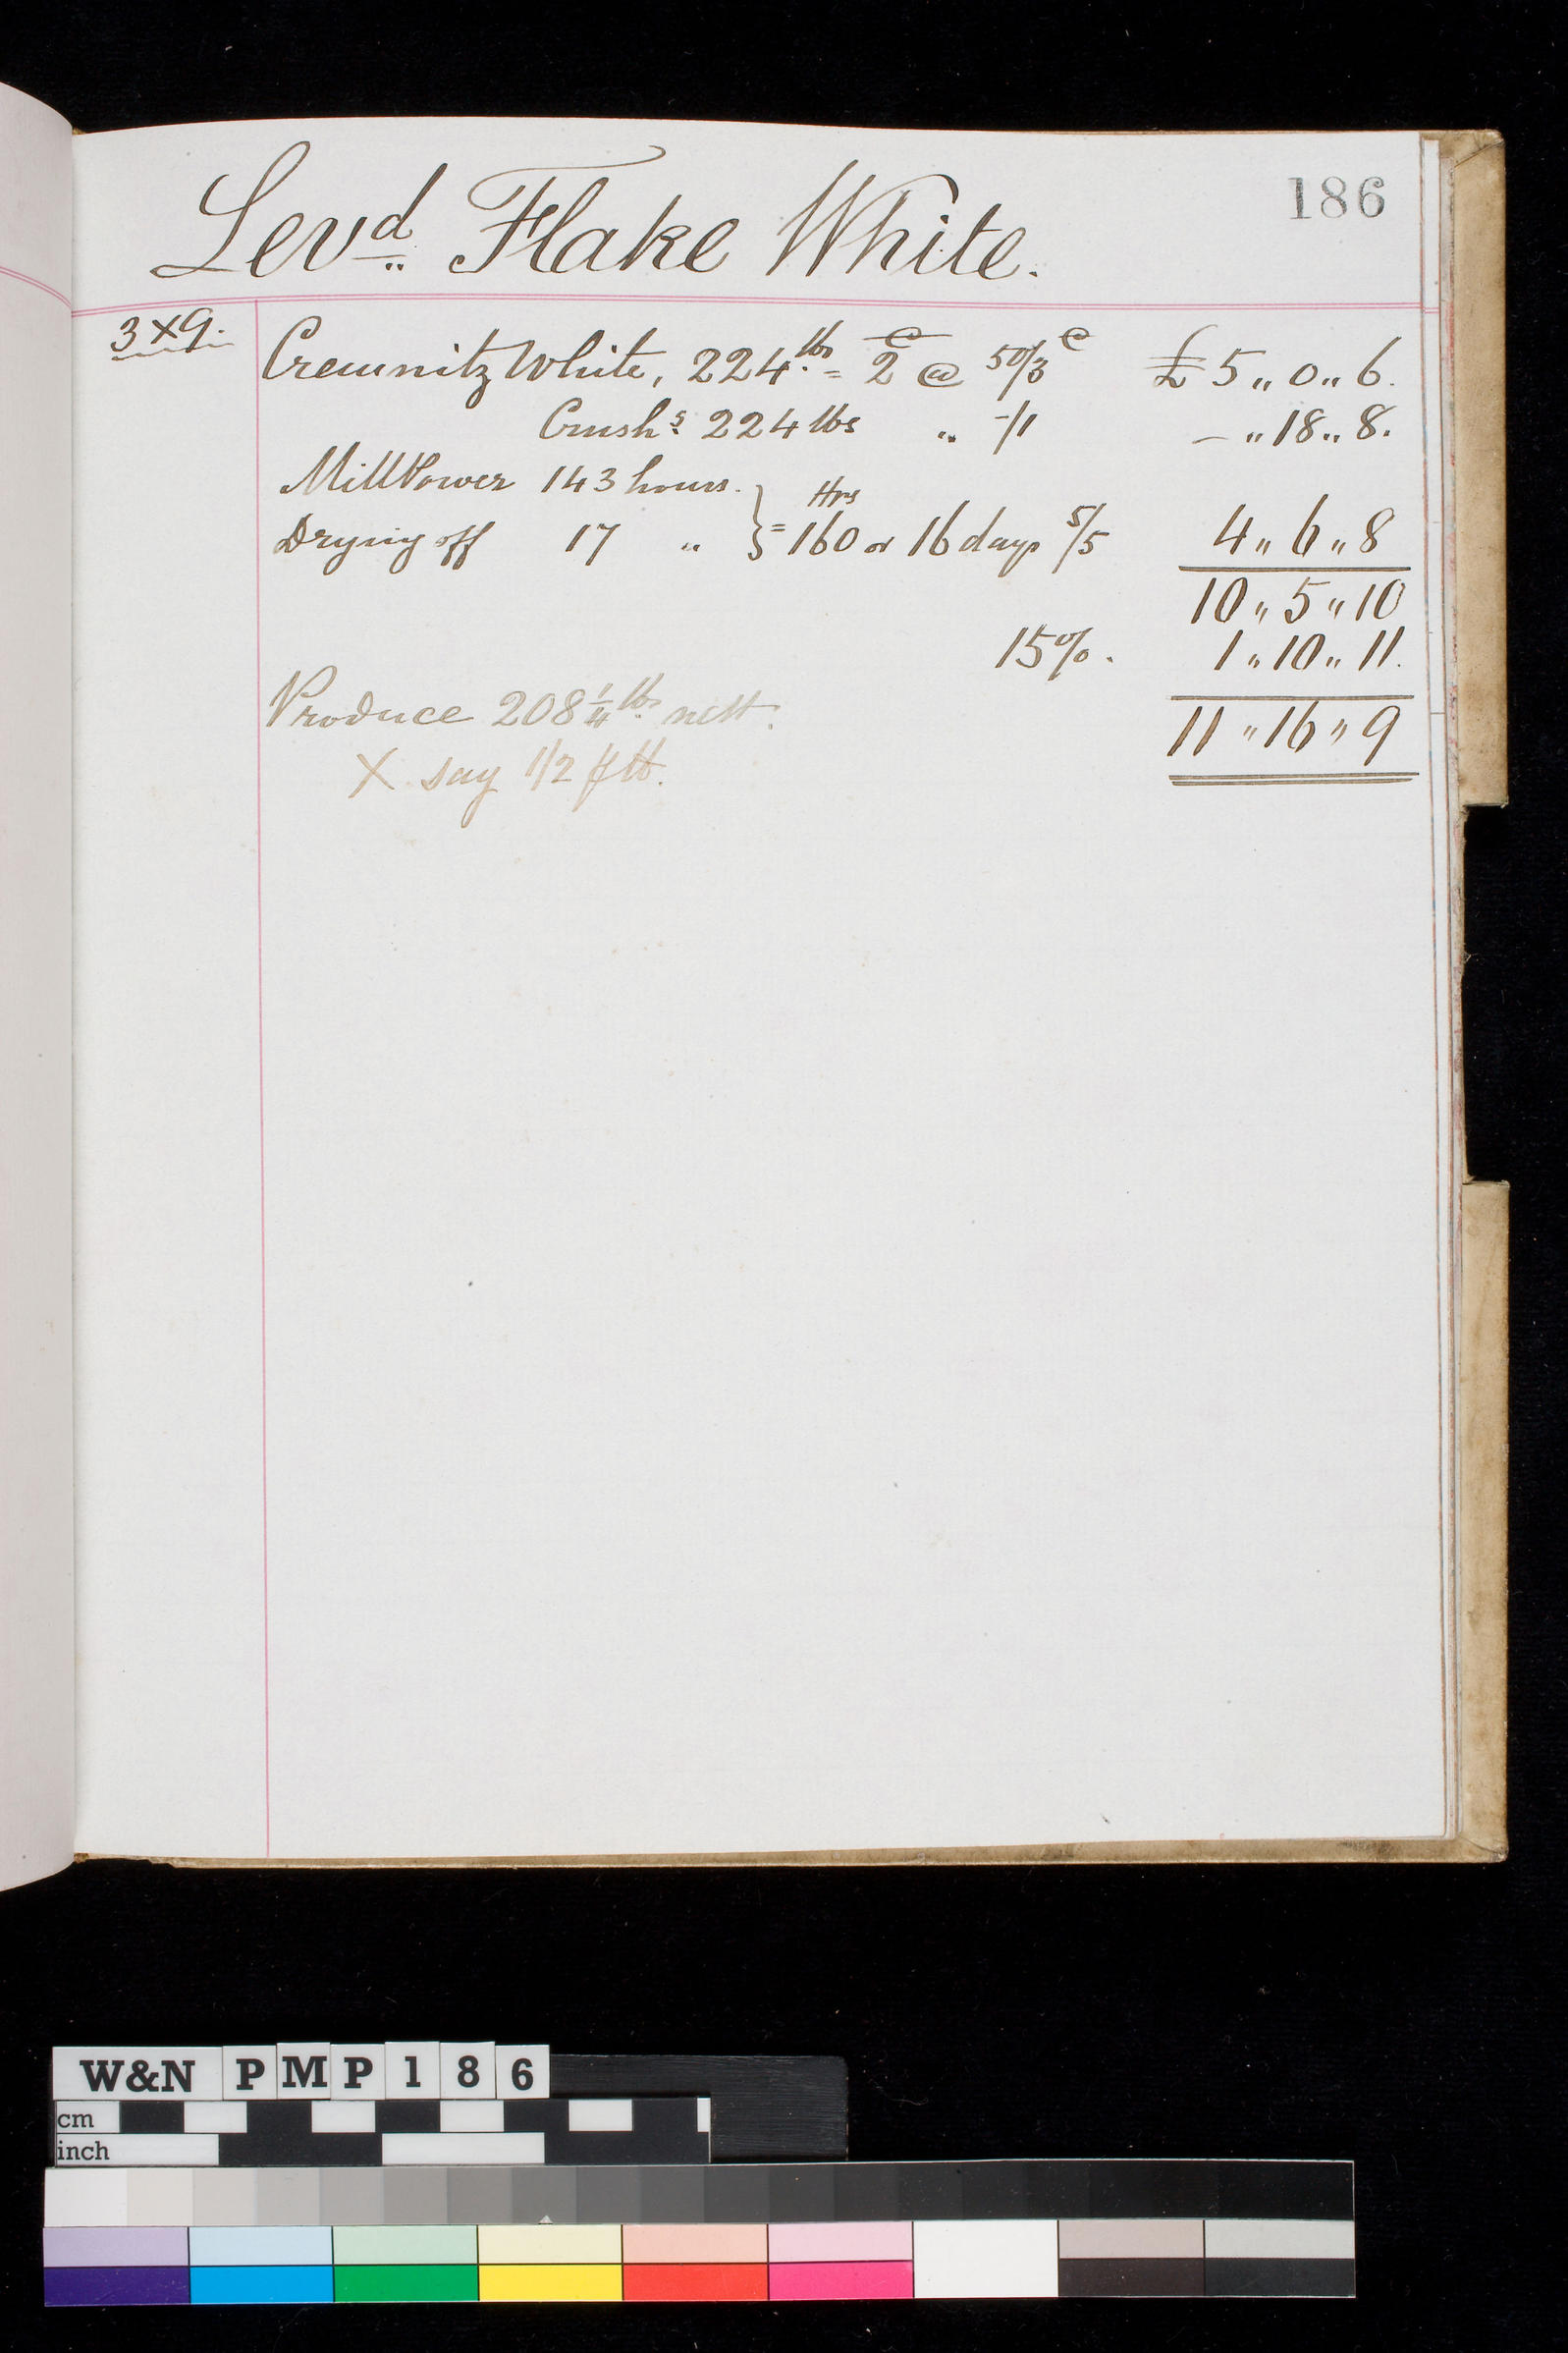 186
Lev.d Flake White.
3 x 9.
Cremnitz White, 224 lbs = 2 C @ 50/3 C £ 5 ,, 0 ,, 6.
Crush.g 224 lbs ,, -/1 – ,, 18 ,, 8.
Mill Power 143 hours.
Drying off 17 ,, } = 160 Hrs or 16 days 5/5 4 ,, 6 ,, 8
10 ,, 5 ,, 10
15%. 1 ,, 10 ,, 11.
Produce 208 1/4 lbs nett. 11 ,, 16 ,, 9
X say 1/2 p lb.
W&N PMP186
cm
inch